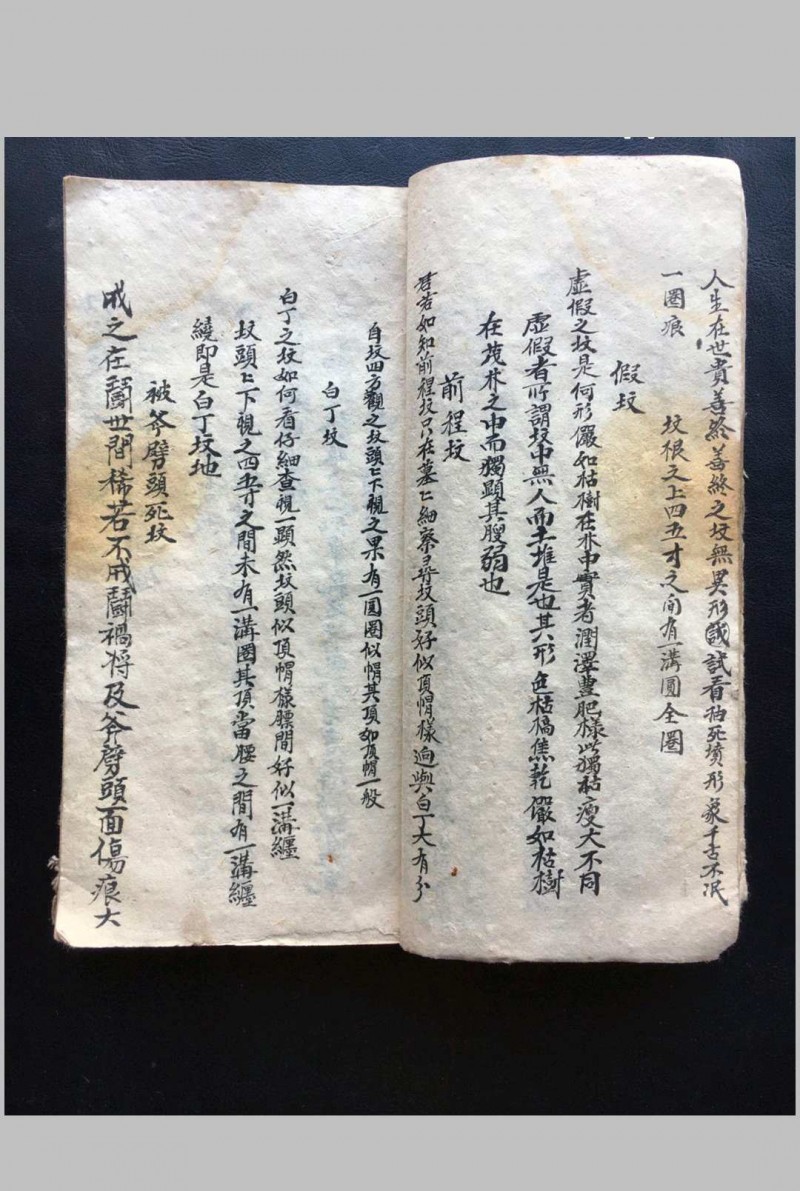 人生在世貴善終善終之坟無異形國試看袖死墳形象千古不泯
一圈痕
坟根之上四五寸之间有一溝圓全圈
假坟
虛假之坟是何形儼如枯樹在林中實者潤澤豊肥樣此獨枯瘦大不同
虛假者所謂坟中無人而土堆是也其形色枯槁焦乾儼如枯樹
在茂林之中而獨顕其腹弱也
前程坟
君若如知前程坟只在墓上細察尋坟頭好似頂帽樣迥與白丁大有分
自坟四方觀之坟頭上下視之果有一圓圈似帽其頂如頂帽一般
白丁坟
白丁之坟如何看仔細查視一顕然坟頭似頂帽樣腰間好似一溝纏
坟頭上下視之四五寸之間未有一溝圈其頂當腰之間有一溝纏
繞即是白丁坟地
被斧劈頭死坟
戒之在鬪世間稀若不戒鬪禍将及斧劈頭一面傷痕大